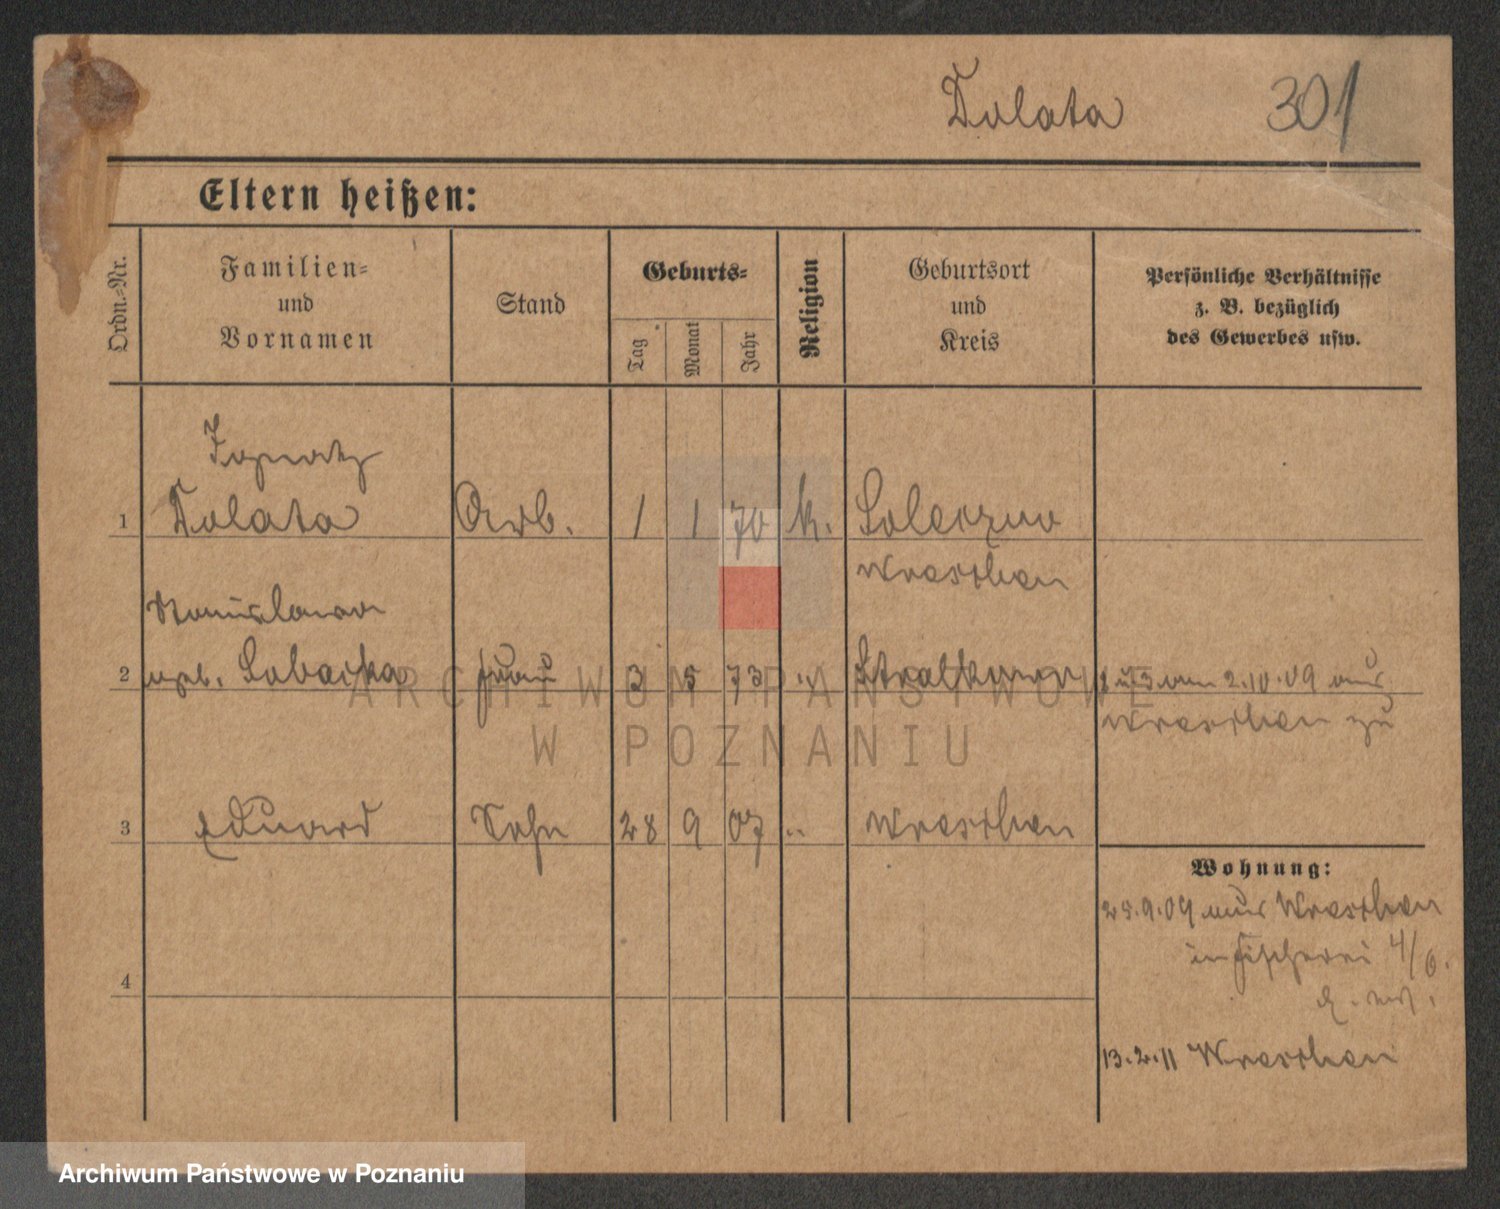 Dolata 301
Eltern heißen:
Ordn.-Nr.
Familien-
und
Vornamen
Stand
Geburts-
Tag
Monat
Jahr
Religion
Geburtsort
und
Kreis
Persönliche Verhältnisse
z. B. bezüglich
des Gewerbes usw.
Ignatz
1 Dolata Arb. 1 1 70 k.
Wreschen
Stanislawa
2 geb. Frau 3 5 73 " Stralkowo 2.10.09 aus
Wreschen zu
3 Eduard Sohn 28 9 07 " Wreschen
Wohnung:
25.9.09 aus Wreschen
in Fischerei 4/6.
4
13.2.11 Wreschen
ARCHIWUM PAŃSTWOWE
W POZNANIU
Archiwum Państwowe w Poznaniu